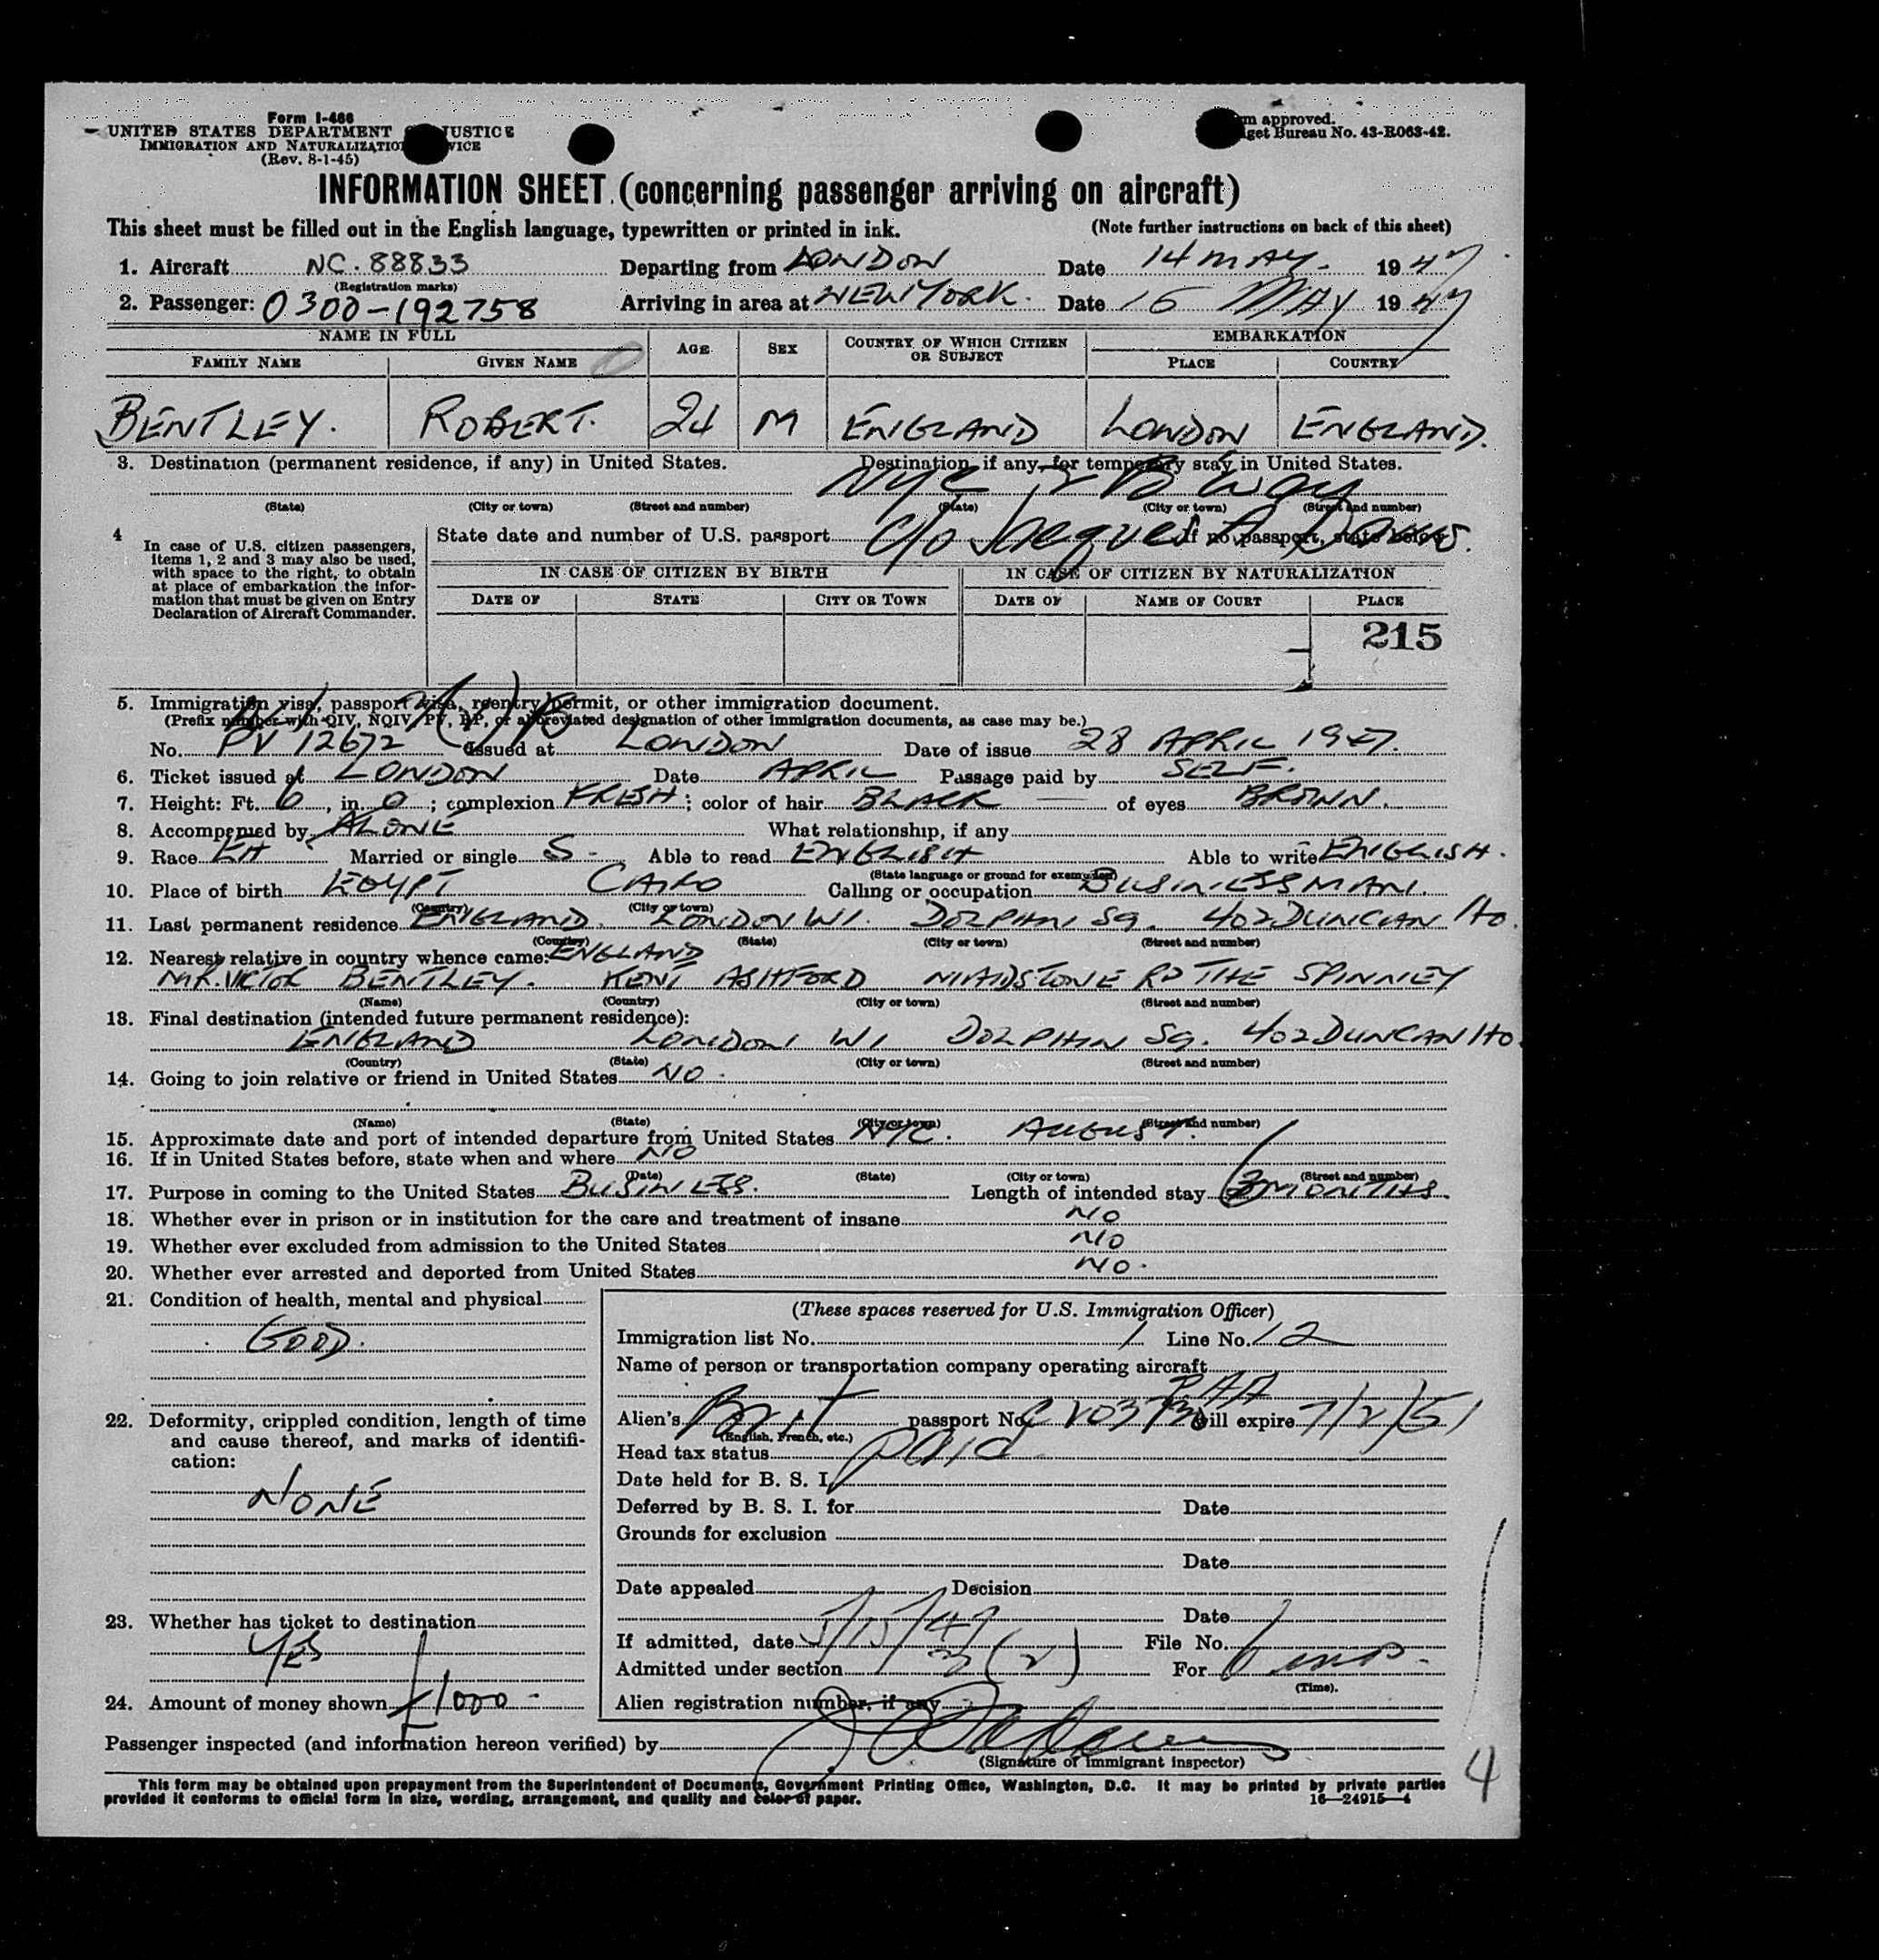 Form I-466
UNITED STATES DEPARTMENT JUSTICE
IMMIGRATION AND NATURALIZATION VICE
(Rev. 8-1-45)
m approved.
get Bureau No. 43-R063-42.
INFORMATION SHEET (concerning passenger arriving on aircraft)
This sheet must be filled out in the English language, typewritten or printed in ink. (Note further instructions on back of this sheet)
1. Aircraft NC. 88833 Departing from LONDON Date 14 MAY 1947
(Registration marks)
2. Passenger: 0300-192758 Arriving in area at NEW YORK. Date 15 MAY 1947
NAME IN FULL AGE SEX COUNTRY OF WHICH CITIZEN OR SUBJECT EMBARKATION
FAMILY NAME GIVEN NAME PLACE COUNTRY
BENTLEY. ROBERT. 24 M ENGLAND LONDON ENGLAND.
3. Destination (permanent residence, if any) in United States. Destination, if any, for temporary stay in United States.
NYC 2 B'way
(State) (City or town) (Street and number) (State) (City or town) (Street and number)
c/o
4 In case of U.S. citizen passengers, items 1, 2 and 3 may also be used, with space to the right, to obtain at place of embarkation the information that must be given on Entry Declaration of Aircraft Commander.
State date and number of U.S. passport If no passport, state below:
IN CASE OF CITIZEN BY BIRTH IN CASE OF CITIZEN BY NATURALIZATION
DATE OF STATE CITY OR TOWN DATE OF NAME OF COURT PLACE
215
5. Immigration visa, passport visa, reentry permit, or other immigration document.
(Prefix number with QIV, NQIV, PV, RP, or abbreviated designation of other immigration documents, as case may be.)
No. PV 12672 Issued at LONDON Date of issue 28 APRIL 1947.
6. Ticket issued at LONDON Date APRIL Passage paid by SELF.
7. Height: Ft. 6, in. 0; complexion FRESH; color of hair BLACK of eyes BROWN.
8. Accompanied by ALONE What relationship, if any
9. Race Married or single S. Able to read ENGLISH Able to write ENGLISH.
(State language or ground for exemption)
10. Place of birth EGYPT CAIRO Calling or occupation BUSINESSMAN.
(Country) (City or town)
11. Last permanent residence ENGLAND. LONDON W1. DOLPHIN SQ. 402 DUNCAN HO.
(Country) (State) (City or town) (Street and number)
12. Nearest relative in country whence came: ENGLAND
MR. VICTOR BENTLEY. KENT ASHFORD MAIDSTONE RD THE SPINNEY
(Name) (Country) (City or town) (Street and number)
13. Final destination (intended future permanent residence):
ENGLAND LONDON W1 DOLPHIN SQ. 402 DUNCAN HO.
(Country) (State) (City or town) (Street and number)
14. Going to join relative or friend in United States NO.
(Name) (State) (City or town) (Street and number)
15. Approximate date and port of intended departure from United States NYC. AUGUST.
16. If in United States before, state when and where NO
(Date) (State) (City or town) (Street and number)
17. Purpose in coming to the United States BUSINESS. Length of intended stay 3 MONTHS.
18. Whether ever in prison or in institution for the care and treatment of insane NO
19. Whether ever excluded from admission to the United States NO
20. Whether ever arrested and deported from United States NO.
21. Condition of health, mental and physical
GOOD.
22. Deformity, crippled condition, length of time and cause thereof, and marks of identification:
NONE
23. Whether has ticket to destination
YES
24. Amount of money shown £1000-
(These spaces reserved for U.S. Immigration Officer)
Immigration list No. 1 Line No. 12
Name of person or transportation company operating aircraft
PAA
Alien's Brit passport No. will expire 7/2/51
(English, French, etc.)
Head tax status paid
Date held for B. S. I.
Deferred by B. S. I. for Date
Grounds for exclusion
Date
Date appealed Decision
Date
If admitted, date 5/15/47 File No.
Admitted under section 3(2) For 6 mos.
(Time).
Alien registration number, if any
Passenger inspected (and information hereon verified) by
(Signature of immigrant inspector)
This form may be obtained upon prepayment from the Superintendent of Documents, Government Printing Office, Washington, D.C. It may be printed by private parties
provided it conforms to official form in size, wording, arrangement, and quality and color of paper. 16—24915-4
4